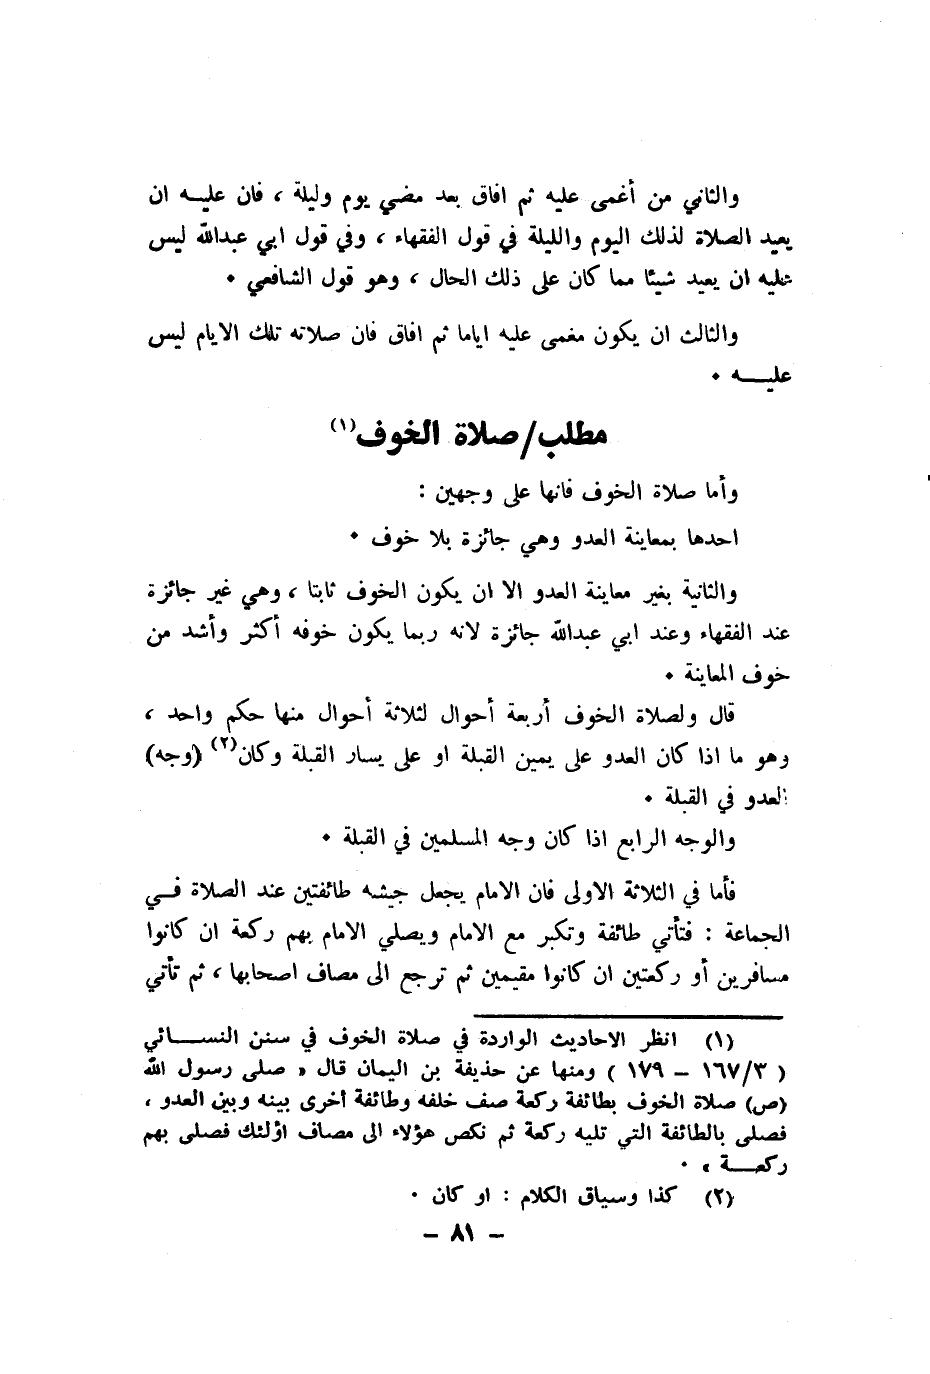 والثاني من أغمى عليه ثم افاق بعد مضي يوم وليلة ، فان عليــه ان
يعيد الصلاة لذلك اليوم والليلة في قول الفقهاء ، وفي قول ابي عبدالله ليس
عليه ان يعيد شيئا مما كان على ذلك الحال ، وهو قول الشافعي •
والثالث ان يكون مغمى عليه اياما ثم افاق فان صلاته تلك الايام ليس
عليــــه •
مطلب/صلاة الخوف(١)
وأما صلاة الخوف فانها على وجهين :
احدها بمعاينة العدو وهي جائزة بلا خوف •
والثانية بغير معاينة العدو الا ان يكون الخوف ثابتا ، وهي غير جائزة
عند الفقهاء وعند ابي عبدالله جائزة لانه ربما يكون خوفه أكثر وأشد من
خوف المعاينة •
قال ولصلاة الخوف أربعة أحوال لثلاثة أحوال منها حكم واحد ،
وهو ما اذا كان العدو على يمين القبلة او على يسار القبلة وكان(٢) (وجه)
العدو في القبلة •
والوجه الرابع اذا كان وجه المسلمين في القبلة •
فأما في الثلاثة الاولى فان الامام يجعل جيشه طائفتين عند الصلاة فــي
الجماعة : فتأتي طائفة وتكبر مع الامام ويصلي الامام بهم ركعة ان كانوا
مسافرين أو ركعتين ان كانوا مقيمين ثم ترجع الى مصاف اصحابها ، ثم تأتي
(١) انظر الاحاديث الواردة في صلاة الخوف في سنن النســـائي
( ١٦٧/٣ – ١٧٩ ) ومنها عن حذيفة بن اليمان قال « صلى رسول الله
(ص) صلاة الخوف بطائفة ركعة صف خلفه وطائفة أخرى بينه وبين العدو ،
فصلى بالطائفة التي تليه ركعة ثم نكص هؤلاء الى مصاف اؤلئك فصلى بهم
ركعـــة » •
(٢) كذا وسياق الكلام : او كان •
– ٨١ –